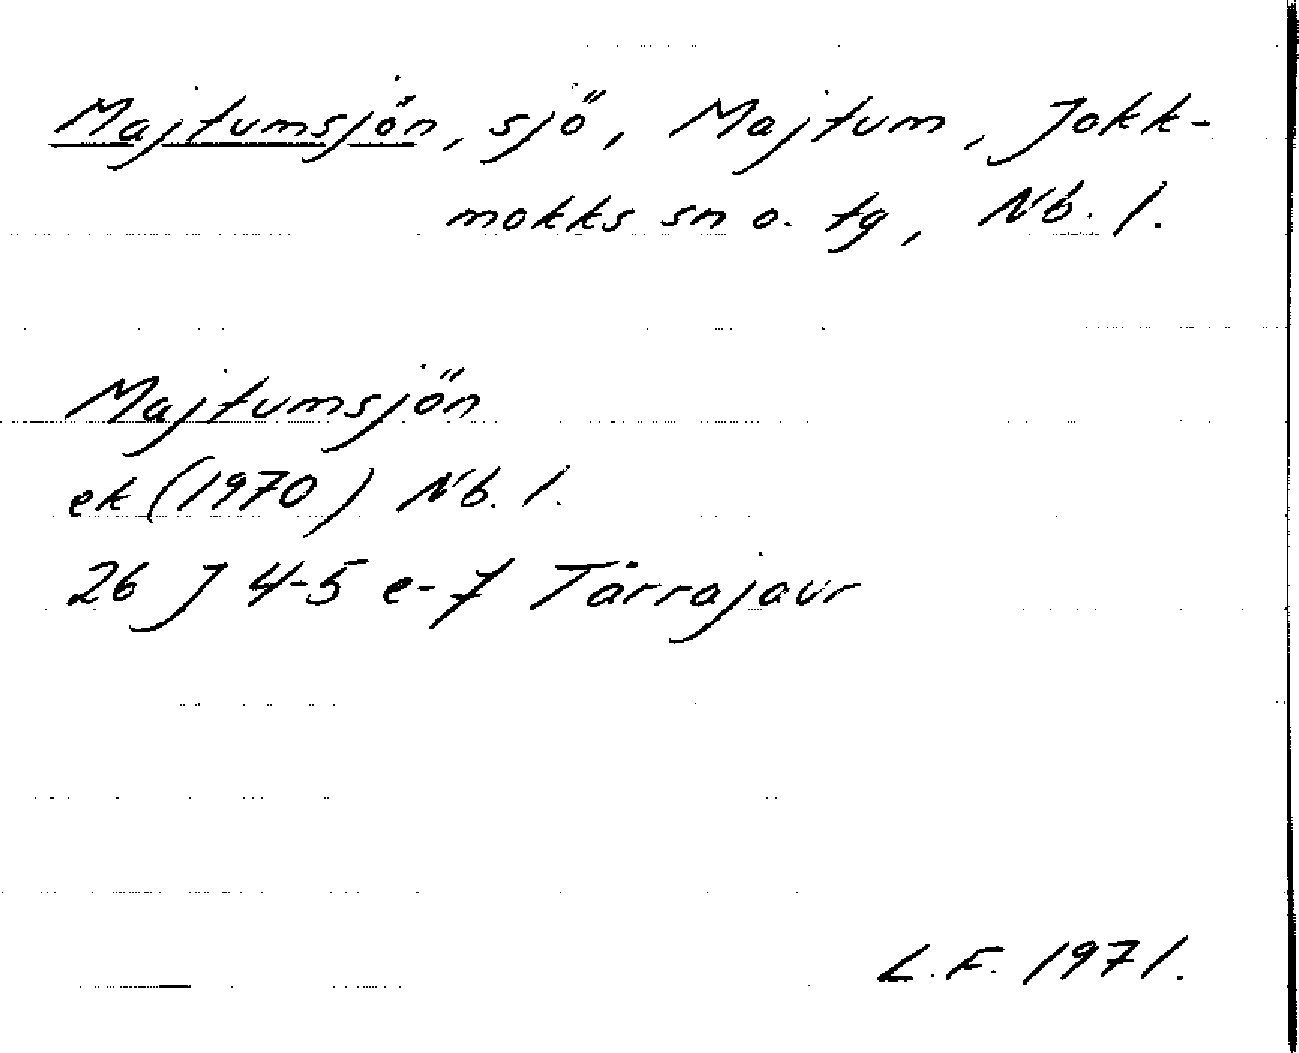 Majtumsjön, sjö, Majtum, Jokk-
mokks sn o. tg, Nb. l.
Majtumsjön
ek (1970) Nb. l.
26 J 4-5 e-f Tårrajaur
L.F. 1971.